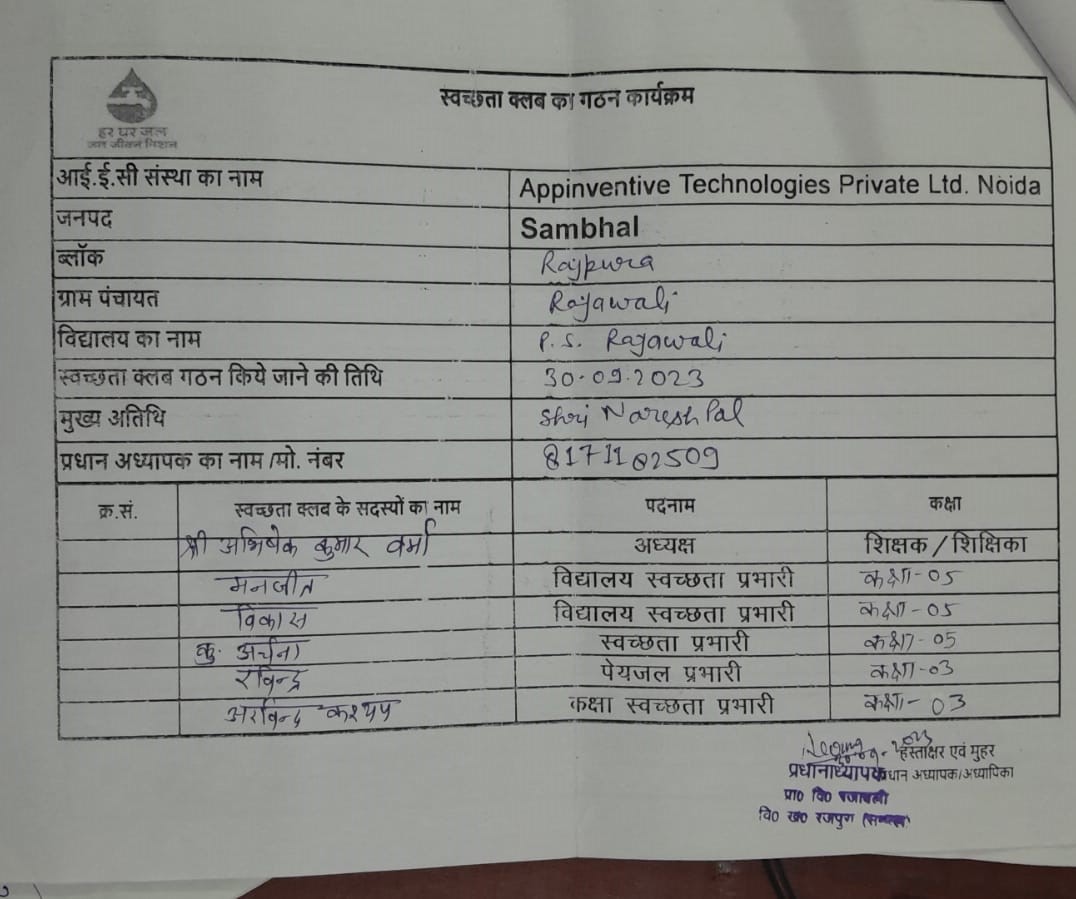 हर घर जल
जल जीवन मिशन
स्वच्छता क्लब का गठन कार्यक्रम
आई.ई.सी संस्था का नाम Appinventive Technologies Private Ltd. Noida
जनपद Sambhal
ब्लॉक Rajpura
ग्राम पंचायत Rajawali
विद्यालय का नाम P.S. Rajawali
स्वच्छता क्लब गठन किये जाने की तिथि 30-09-2023
मुख्य अतिथि Shri Naresh Pal
प्रधान अध्यापक का नाम /मो. नंबर 8171182509
क्र.सं. स्वच्छता क्लब के सदस्यों का नाम पदनाम कक्षा
श्री अभिषेक कुमार वर्मा अध्यक्ष शिक्षक / शिक्षिका
मनजीत विद्यालय स्वच्छता प्रभारी कक्षा-05
विकास विद्यालय स्वच्छता प्रभारी कक्षा-05
कु. अर्चना स्वच्छता प्रभारी कक्षा-05
रविन्द्र पेयजल प्रभारी कक्षा-03
अरविन्द कश्यप कक्षा स्वच्छता प्रभारी कक्षा-03
हस्ताक्षर एवं मुहर
प्रधानाध्यापक धान अध्यापक/अध्यापिका
प्रा० वि० रजावली
वि० ख० रजपुरा